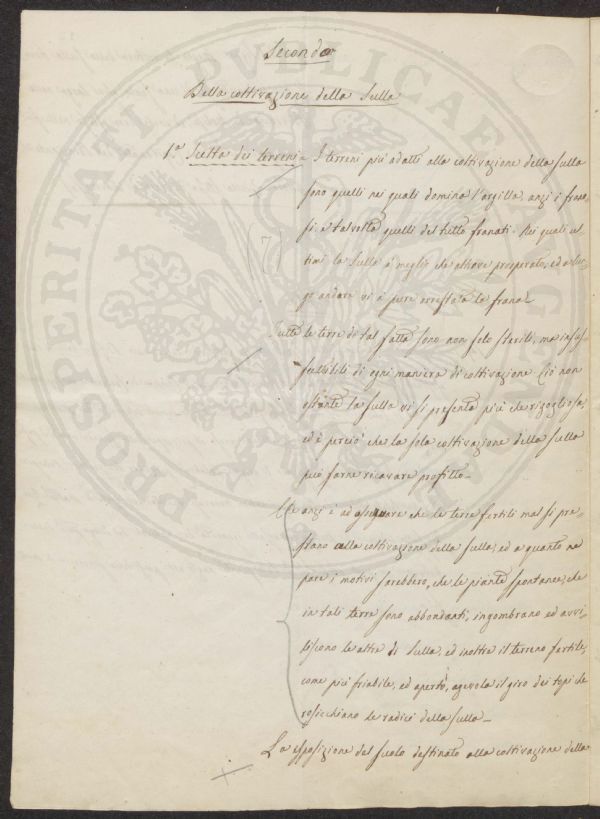 Secondo
Della coltivazione della Sulla
1.º Scelta dei terreni = I terreni più adatti alla coltivazione della sulla
sono quelli nei quali domina l'argilla, anzi i frano,
si, e talvolta quelli del tutto franati. Nei quali ul,
timi la sulla à meglio che altrove prosperato, ed a lun,
go andare vi à pure arrestata la frana.
(7)
Tutte le terre di tal fatta sono non solo sterili, ma insof,
fribili di ogni maniera di coltivazione. Ciò non
ostante la sulla vi si presenta più che rigogliosa,
ed è perciò che la sola coltivazione della sulla
può farne ricavare profitto.
Che anzi è ad osservare che le terre fertili mal si pre,
stano alla coltivazione della sulla, ed a quanto ne
pare i motivi sarebbero, che le piante spontanee, che
in tali terre sono abbondanti, ingombrano ed avvi,
liscono le altre di Sulla, ed inoltre il terreno fertile,
come più friabile, ed aperto, agevola il giro dei topi che
rosicchiano le radici della sulla.
La esposizione del suolo destinato alla coltivazione della
PROSPERITATI PUBLICAE AUG